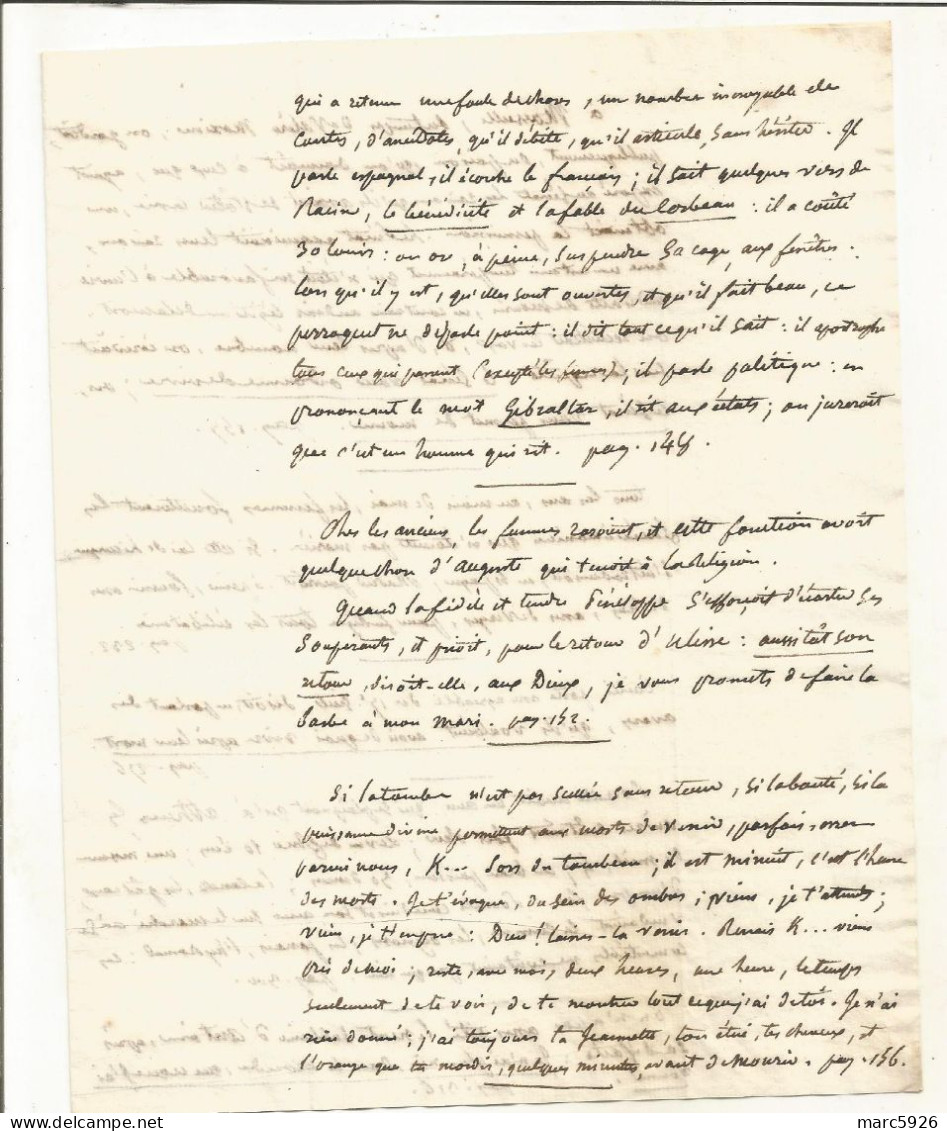 qui a retenu une foule de choses, un nombre incroyable de
Contes, d'anecdotes, qu'il débite, qu'il articule, sans hésiter. Il
parle espagnol, il écorche le français; il sait quelques vers de
Racine, le bénédicité et la fable du Corbeau : il a coûté
30 louis : on ose, à peine, suspendre sa cage, aux fenêtres.
lors qu'il y est, qu'elles sont ouvertes, et qu'il fait beau, ce
perroquet ne déparle point : il dit tout ce qu'il sait : il apostrophe
tous ceux qui passent (excepté les femmes); il parle politique : en
prononçant le mot Gibraltar, il rit aux éclats; on jureroit
que c'est un homme qui rit. pag. 148.
Chez les anciens, les femmes rasoient, et cette fonction avoit
quelque chose d'auguste qui tenoit à la Réligion.
Quand la fidèle et tendre Pénéloppe s'efforçoit d'écarter ses
Soupirants, et prioit, pour le retour d'Ulisse : aussitôt son
retour, disoit-elle, aux Dieux, je vous promets de faire la
barbe à mon mari. pag. 152.
Si la tombe n'est pas scellée sans retour, si la bonté, si la
puissance divine permettent aux morts de venir, parfois, errer
parmi nous, K... sors du tombeau; il est minuit, c'est l'heure
des morts. Je t'évoque, du sein des ombres; viens, je t'attends;
viens, je t'en prie : Dieu! laisses-la venir. Renais K... viens
près de moi; reste, avec moi, deux heures, une heure, le temps
seulement de te voir, de te montrer tout ce que j'ai de toi. Je n'ai
rien donné; j'ai toujours ta Jeannette, ton étui, tes cheveux, et
l'orange que tu mordis, quelques minutes, avant de mourir. pag. 156.
marc5926